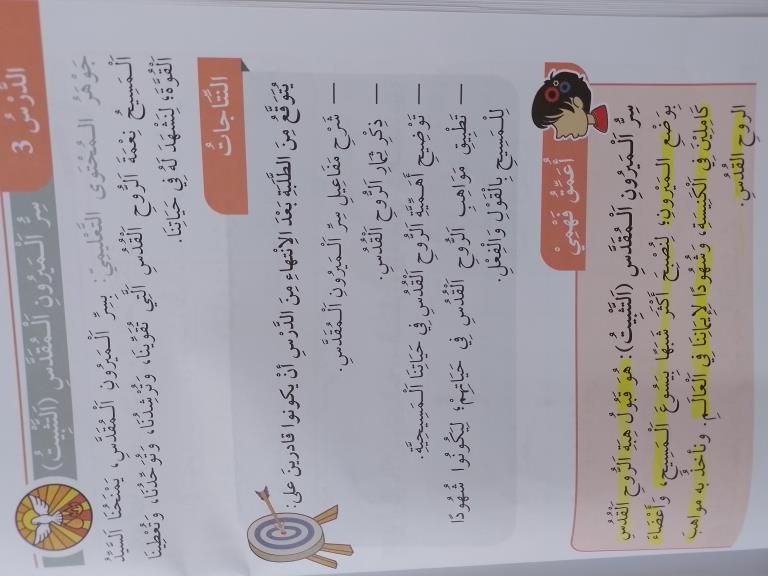 الدَّرْسُ 3
سِرُّ الْمَيْرُونِ الْمُقَدَّسِ (التَّثْبِيْتُ)
جَوْهَرُ الْمُحْتَوَى التَّعْلِيْمِيِّ: بِسِرِّ الْمَيْرُونِ الْمُقَدَّسِ، يَمْنَحُنَا السَّيِّدُ
الْمَسِيحُ نِعْمَةَ الرُّوحِ الْقُدُسِ الَّتِي تُقَوِّينَا، وَتُرْشِدُنَا، وَتُوَحِّدُنَا، وَتُعْطِينَا
الْقُوَّةَ؛ لِنَشْهَدَ لَهُ فِي حَيَاتِنَا.
النَّتَاجَاتُ
يُتَوَقَّعُ مِنَ الطَّلَبَةِ بَعْدَ الِانْتِهَاءِ مِنَ الدَّرْسِ أَنْ يَكُونوا قَادرينَ عَلى:
– شَرْحِ مَفَاعِيلِ سِرِّ الْمَيْرُونِ الْمُقَدَّسِ.
– ذِكْرِ ثِمَارِ الرُّوحِ الْقُدُسِ.
– تَوْضِيحِ أَهَمِّيَّةِ الرُّوحِ الْقُدُسِ فِي حَيَاتِنَا الْمَسِيحِيَّةِ.
– تَطْبِيقِ مَوَاهِبِ الرُّوحِ الْقُدُسِ فِي حَيَاتِهِمْ؛ لِيَكُونُوا شُهُودًا
لِلْمَسِيحِ بِالْقَوْلِ وَالْفِعْلِ.
أُعَمِّقُ فَهْمِيْ
سِرُّ الْمَيْرُونِ الْمُقَدَّسِ (التَّثْبِيْتُ): هُوَ قَبُولُ هِبَةِ الرُّوحِ الْقُدُسِ
بِوَضْعِ الْمَيْرُونِ؛ لِنُصْبِحَ أَكْثَرَ شَبَهًا بِيَسُوعَ الْمَسِيحِ، وَأَعْضَاءً
كَامِلِيْنَ فِي الْكَنِيسَةِ، وَشُهُودًا لِإِيمَانِنَا فِي الْعَالَمِ. وَنَأْخُذُ بِهِ مَوَاهِبَ
الرُّوحِ الْقُدُسِ.